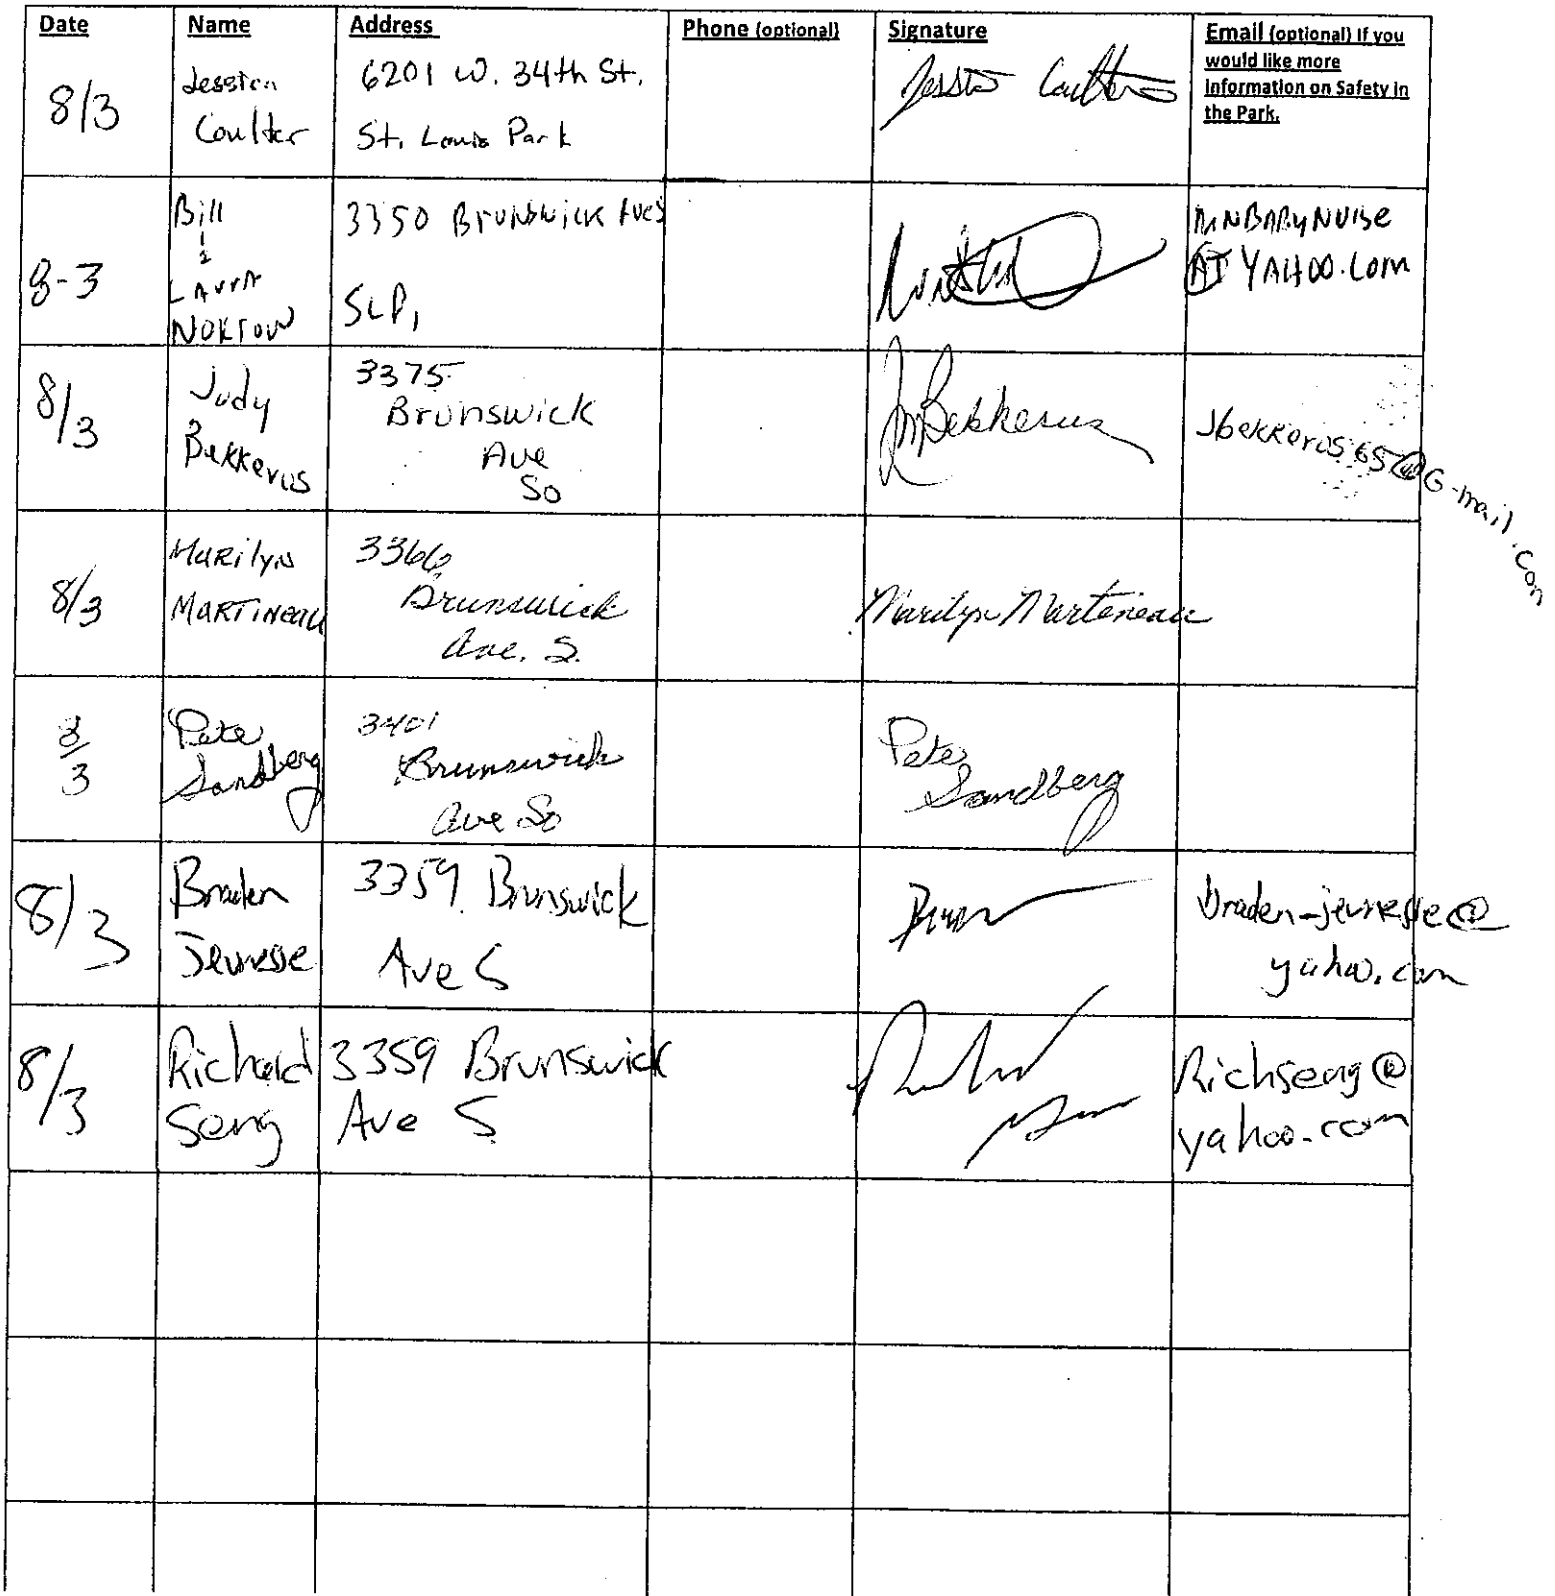 Date Name Address Phone (optional) Signature Email (optional) If you
would like more
Information on Safety in
the Park.
8/3
Jessica
Coulter
6201 W. 34th St.
St. Louis Park
8-3
Bill
&
LAURA
NORTON
3350 Brunswick Ave S
SLP,
MNBABYNURSE
AT YAHOO.COM
8/3
Judy
Bekkerus
3375
Brunswick
Ave
So
JmBekkerus
Jbekkerus65@G-mail.com
8/3
Marilyn
MARTINEAU
3366
Brunswick
Ave. S.
Marilyn Martineau
8/3
Pete
Sandberg
3401
Brunswick
Ave So
Pete
Sandberg
8/3
Braden
Jeunesse
3359 Brunswick
Ave S
braden-jeunesse@
yahoo.com
8/3
Richard
Seng
3359 Brunswick
Ave S
Richseng@
yahoo.com